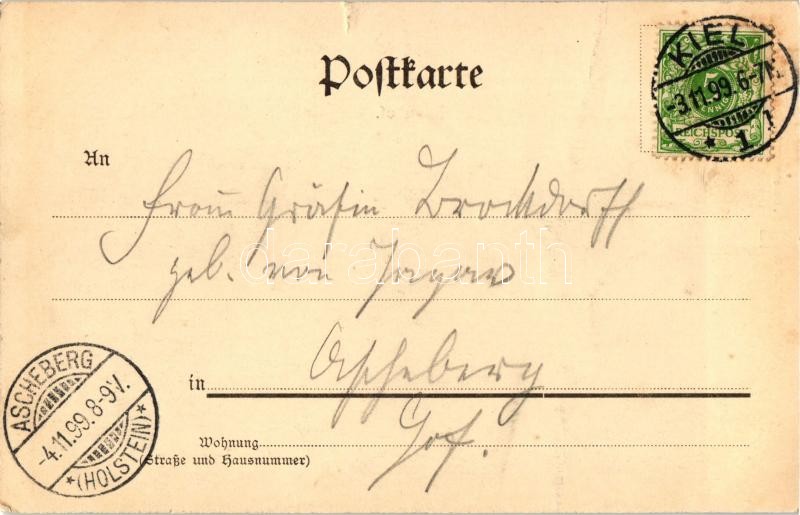 Postkarte
KIEL
-3.11.99.6-7N.
* 1 1
5
PFENNIG
REICHSPOST
An
Frau Gräfin Brockdorff
geb. von Jagow
in Ascheberg
Hof.
Wohnung
(Straße und Hausnummer)
ASCHEBERG
-4.11.99.8-9V.
*(HOLSTEIN)*
darabanth